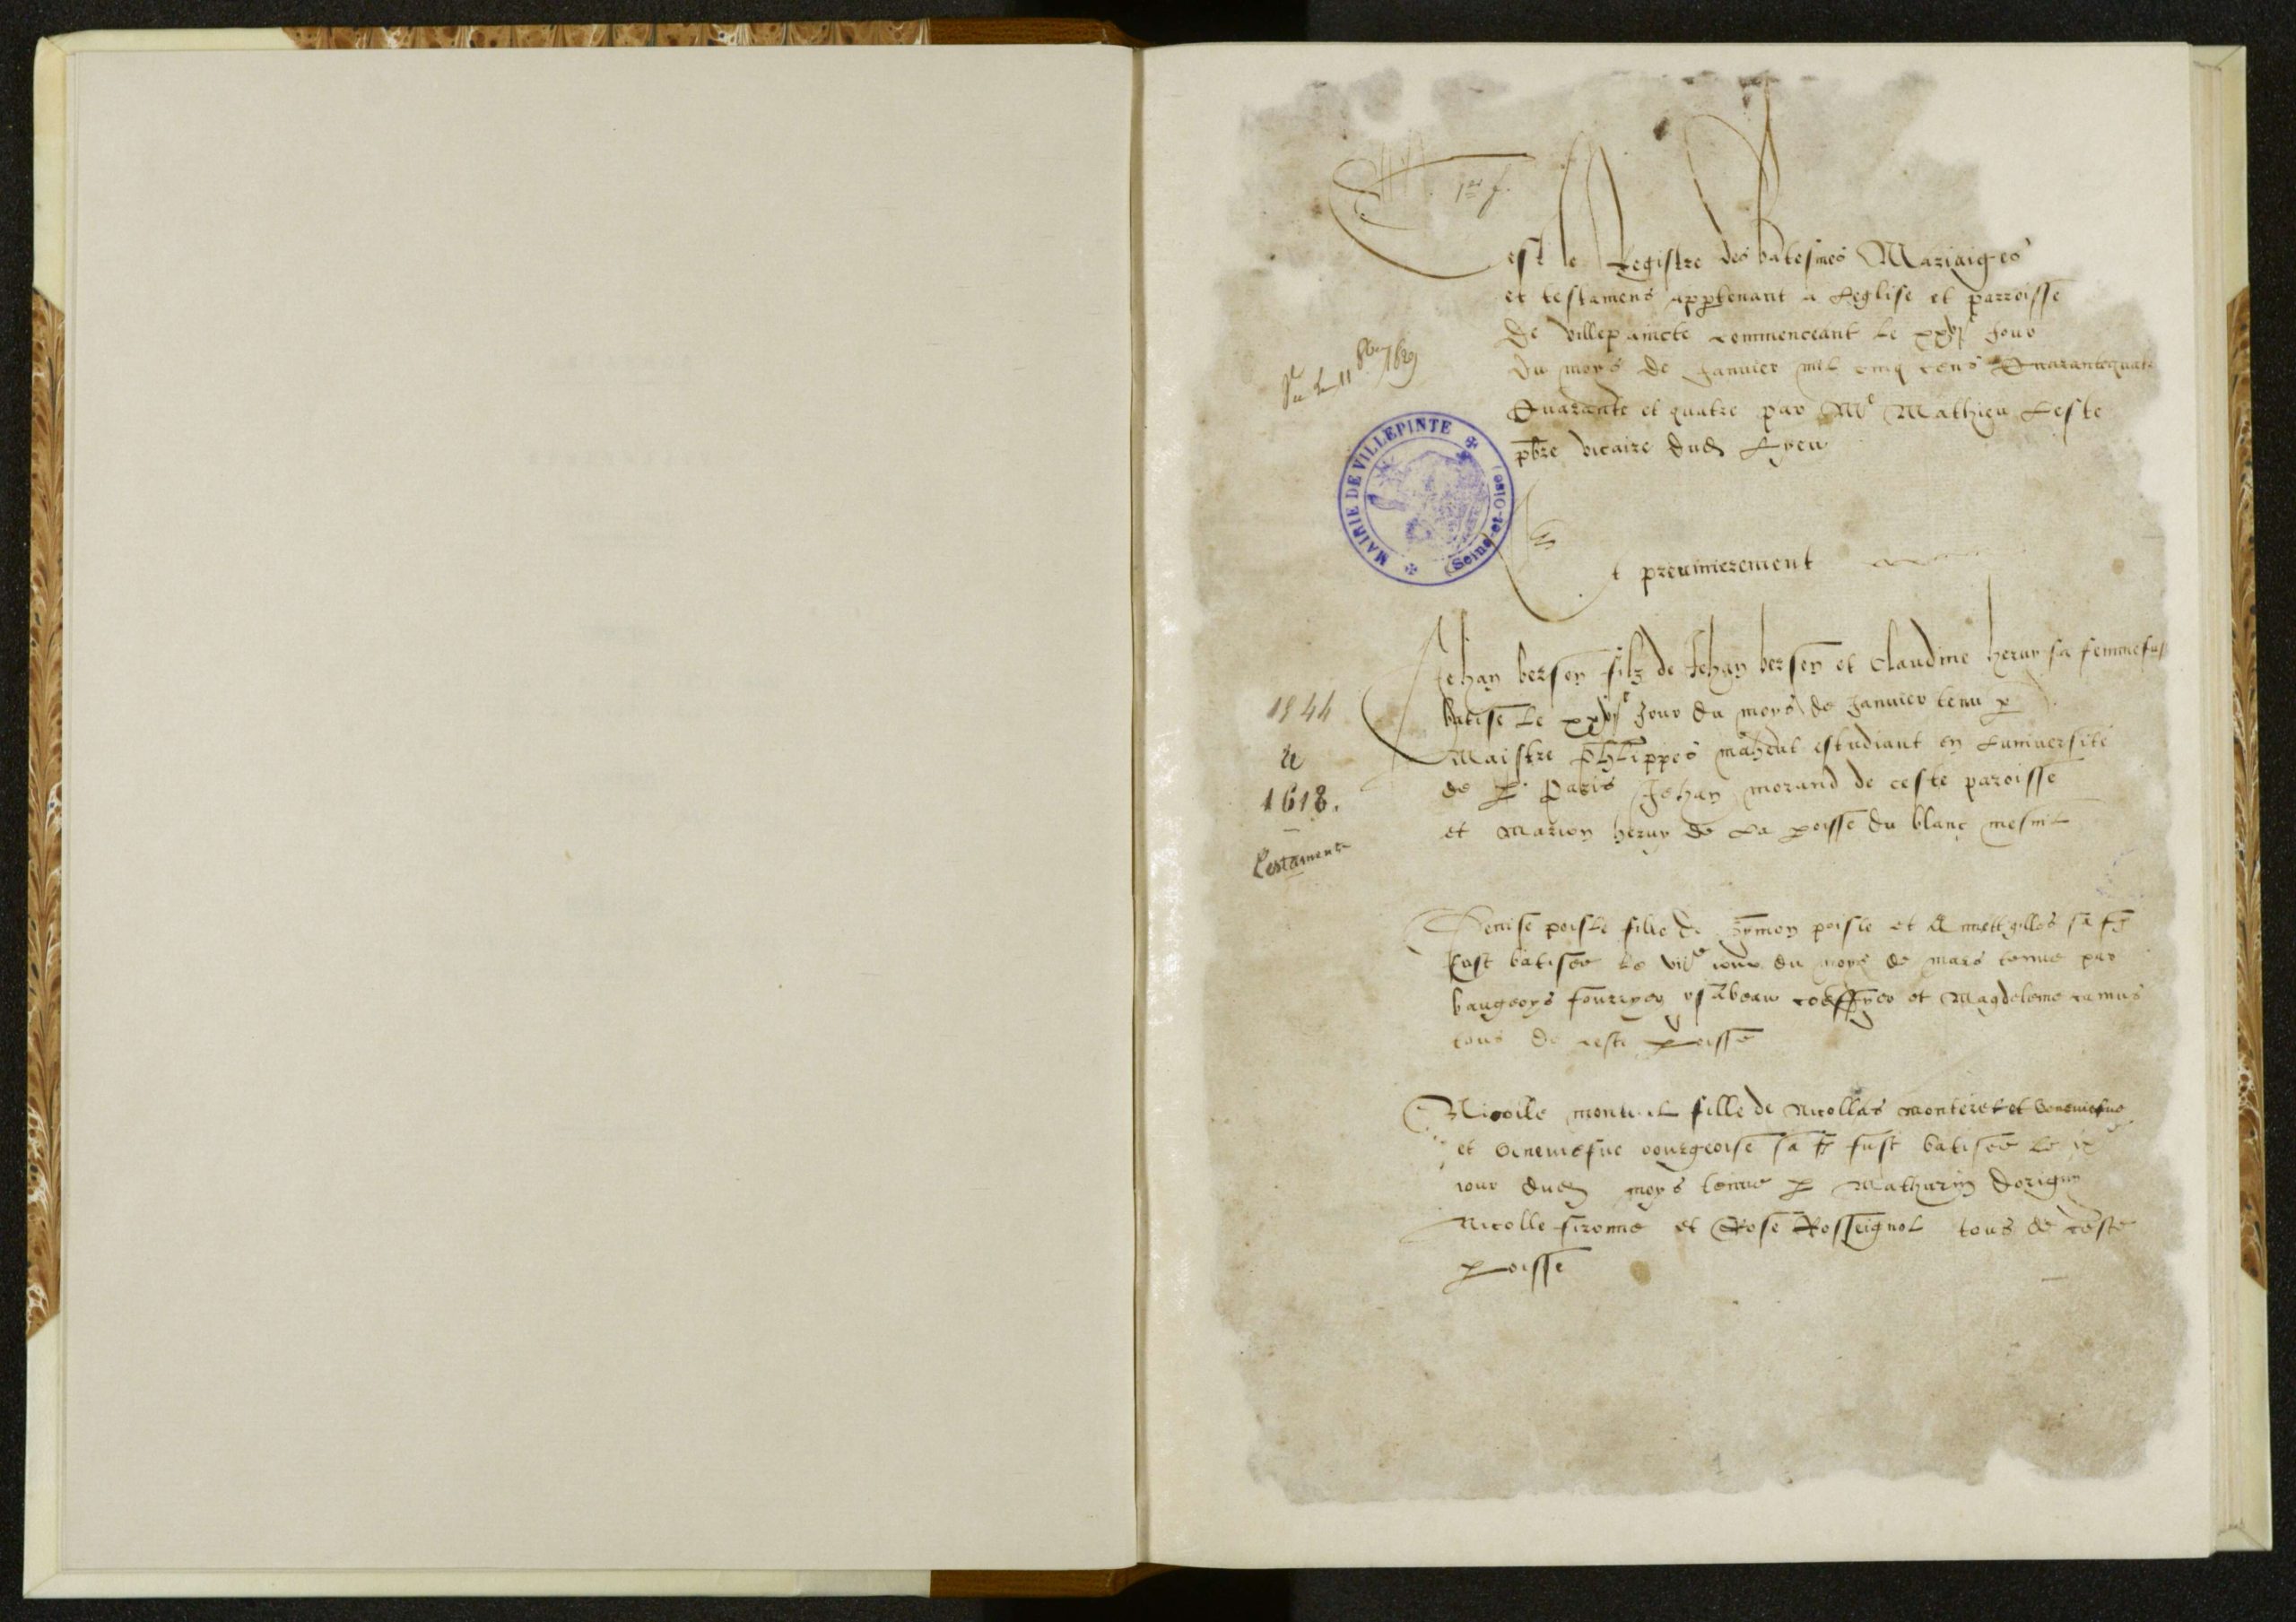 1er f.
Cest le Registre des batesmes Mariaiges
et testamens appartenant a Leglise et parroisse
de villepaincte commenceant le xxvje Jour
du moys de Janvier mil cinq cens Quarantequat
Quarante et quatre par Me Mathieu Leste
pbre vicaire dud Lyeu
Vu le 11 8bre 1829
MAIRIE DE VILLEPINTE
(Seine-et-Oise)
Et premierement
Jehan berson filz de Jehan berson et Claudine heruy sa femme fut
batise le xxvje Jour du moys de Janvier tenu p
Maistre Phlippes maheut estudiant en Luniversite
de p Paris Jehan morand de ceste paroisse
et Marion heruy de La poisse du blanc mesnil
1544
à
1618.
Testaments
Denise poisle fille de Symon poisle et gilles sa fe
fust batisee le viije jour du moys de mars tenue par
baugeoys fourryer ysabeau et Magdelene camus
tous de ceste poisse
Nicolle fille de Nicollas monteret et Geneviefve
et Geneviefve bourgeoise sa fe fust batisee le ixe
jour dud moys tenue p Mathurin dorigny
Nicolle sironne et Rose Rosseignol tous de ceste
poisse